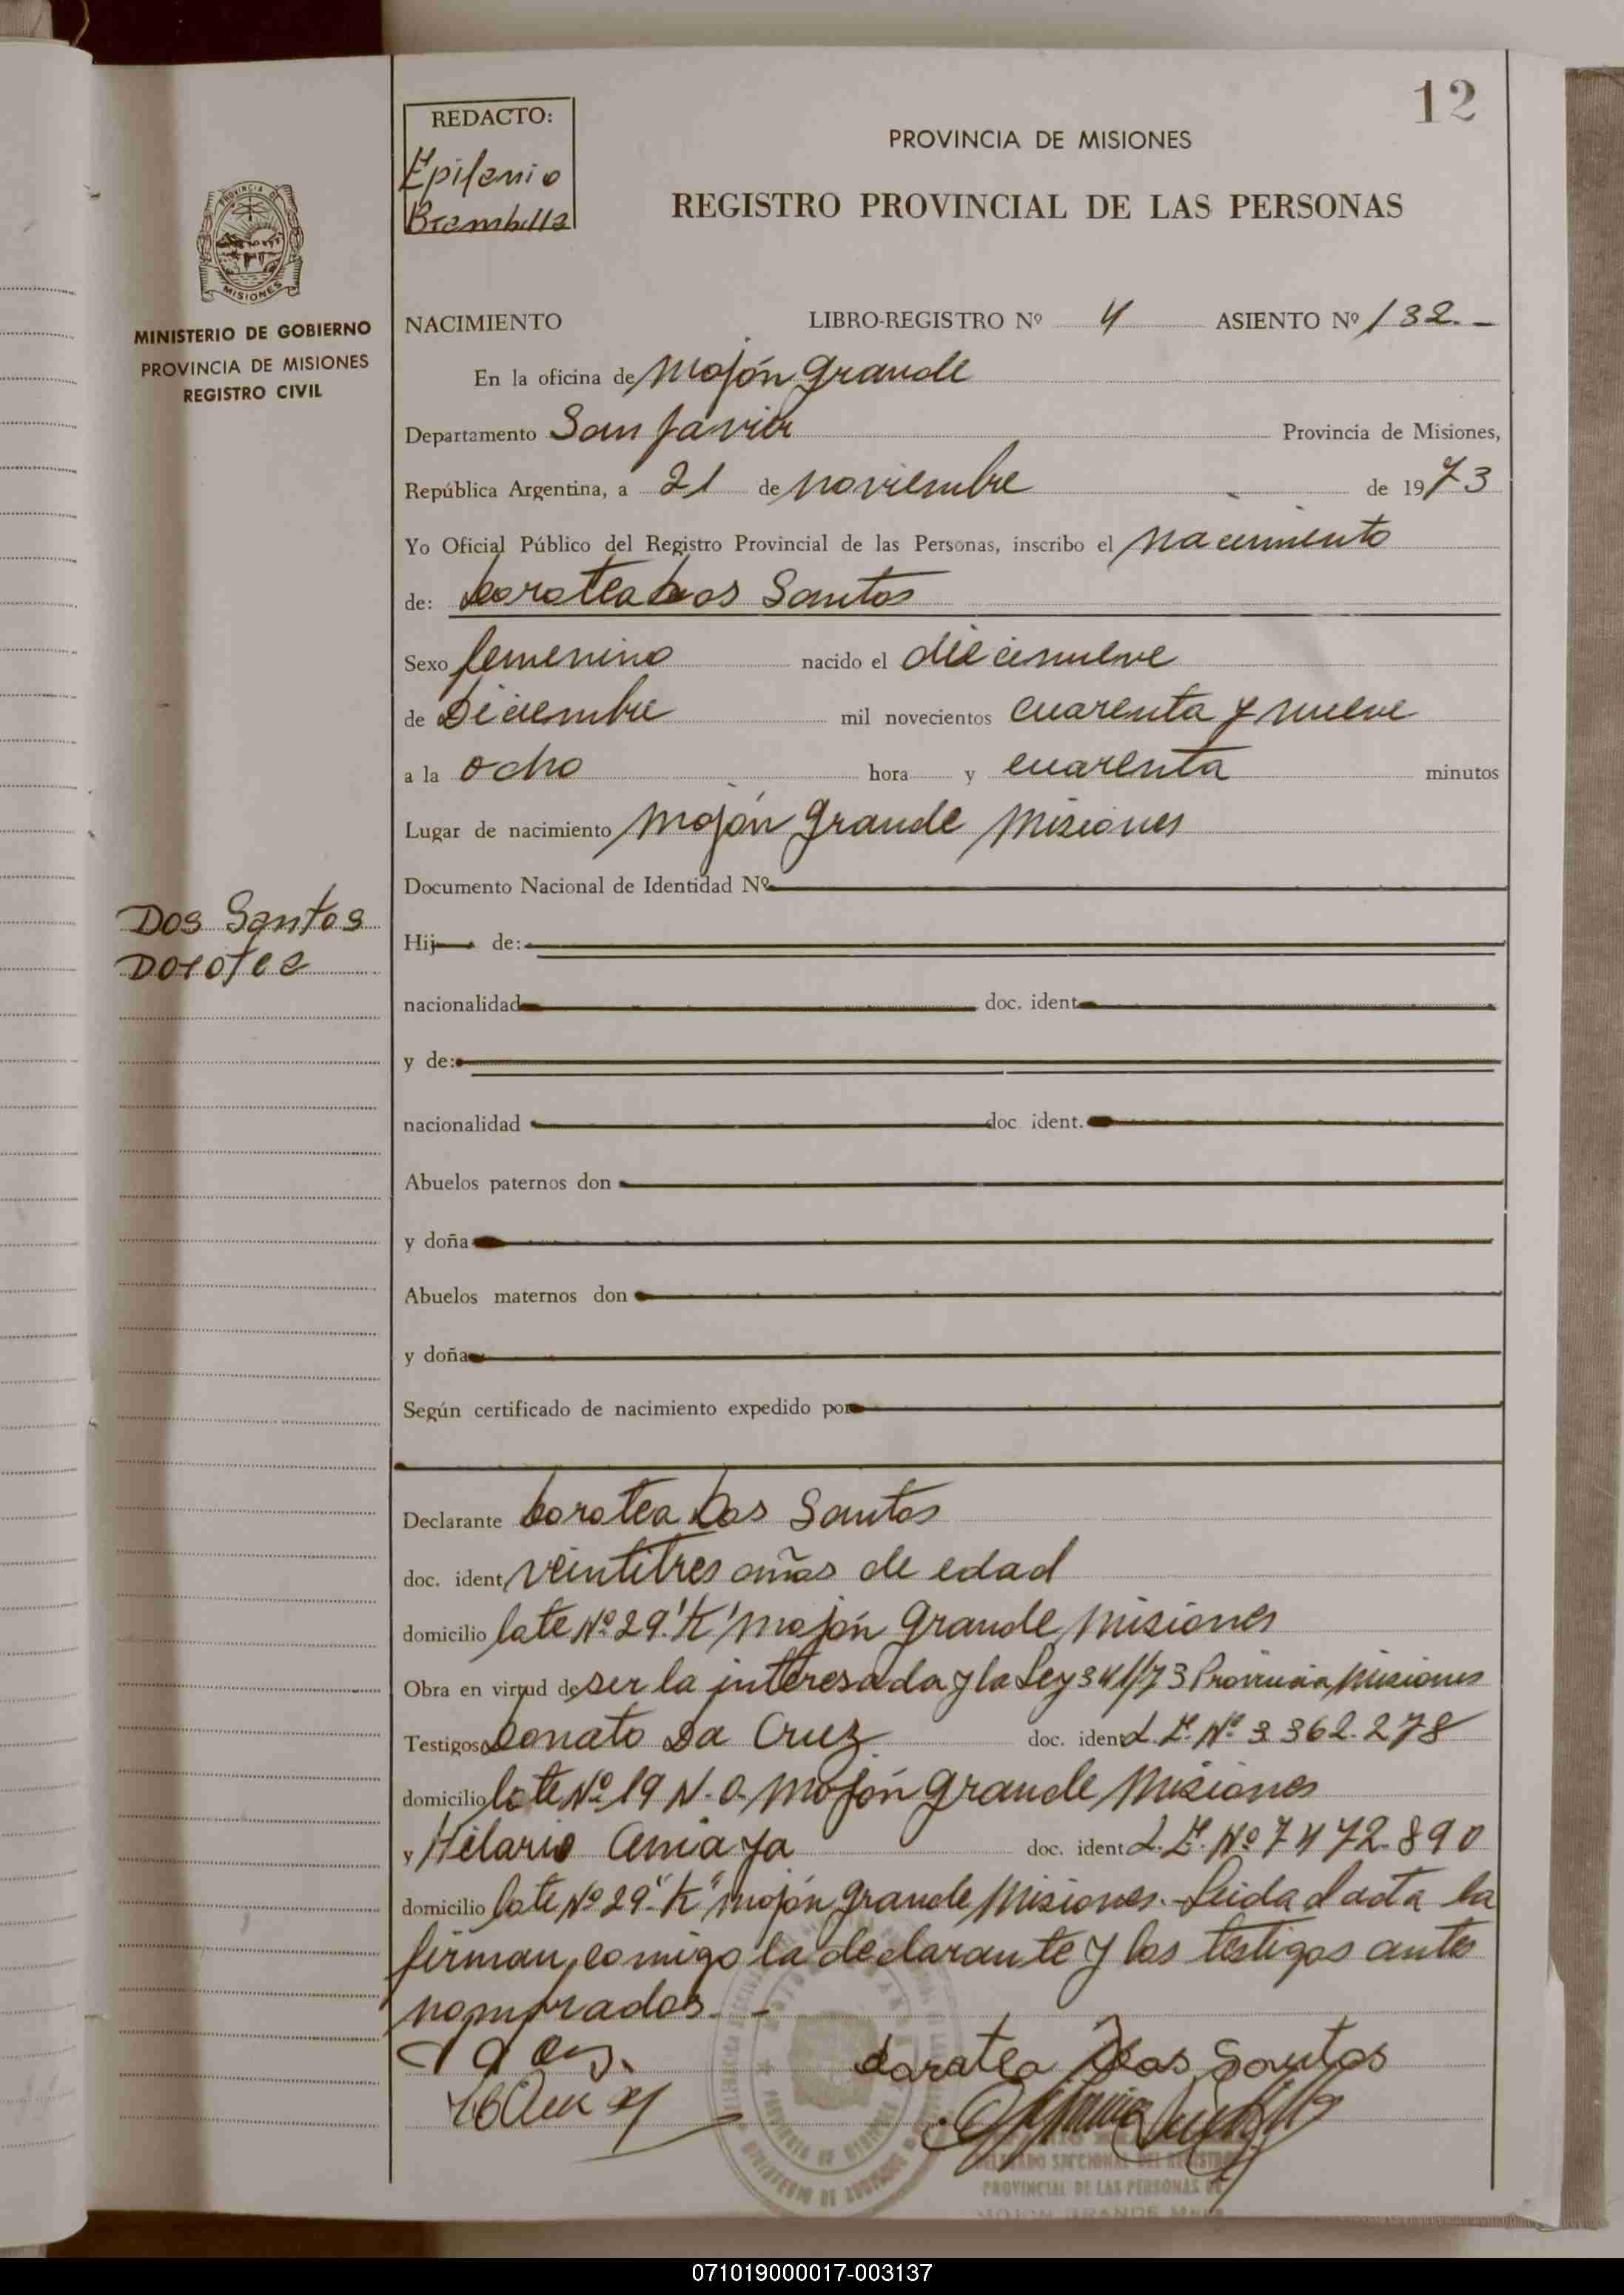 12
REDACTO:
Epifanio
Brambilla
PROVINCIA DE MISIONES
REGISTRO PROVINCIAL DE LAS PERSONAS
PROVINCIA DE
MISIONES
MINISTERIO DE GOBIERNO
PROVINCIA DE MISIONES
REGISTRO CIVIL
NACIMIENTO LIBRO-REGISTRO Nº 4 ASIENTO Nº 132.-
En la oficina de Mojón Grande
Departamento San Javier Provincia de Misiones,
República Argentina, a 21 de noviembre de 1973
Yo Oficial Público del Registro Provincial de las Personas, inscribo el nacimiento
de: Dorotea Dos Santos
Sexo femenino nacido el diecinueve
de Diciembre mil novecientos cuarenta y nueve
a la ocho hora y cuarenta minutos
Lugar de nacimiento Mojón Grande Misiones
Documento Nacional de Identidad Nº
Dos Santos
Dorotea
Hij de:
nacionalidad doc. ident.
y de:
nacionalidad doc. ident.
Abuelos paternos don
y doña
Abuelos maternos don
y doña
Según certificado de nacimiento expedido por
Declarante Dorotea Dos Santos
doc. ident. veintitres años de edad
domicilio lote Nº 29 "K" Mojón Grande Misiones
Obra en virtud de ser la interesada y la Ley 341/73 Provincia Misiones
Testigos Donato Da Cruz doc. ident. L.E. Nº 3362.278
domicilio lote Nº 19 N.O. Mojón Grande Misiones
y Hilario Amaya doc. ident. L.E. Nº 7472.890
domicilio lote Nº 29 "K" Mojón Grande Misiones.- Leida el acta la
firman comigo la declarante y los testigos antes
nombrados.-
Doratea Dos Santos
PROVINCIAL DE LAS PERSONAS DE
MOJON GRANDE
071019000017-003137